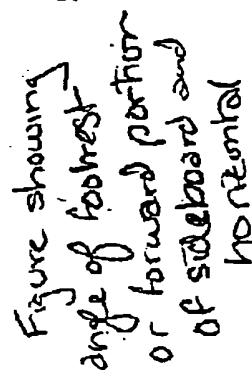 Figure showing
angle of footrest
or forward portion
of sideboard and
horizontal